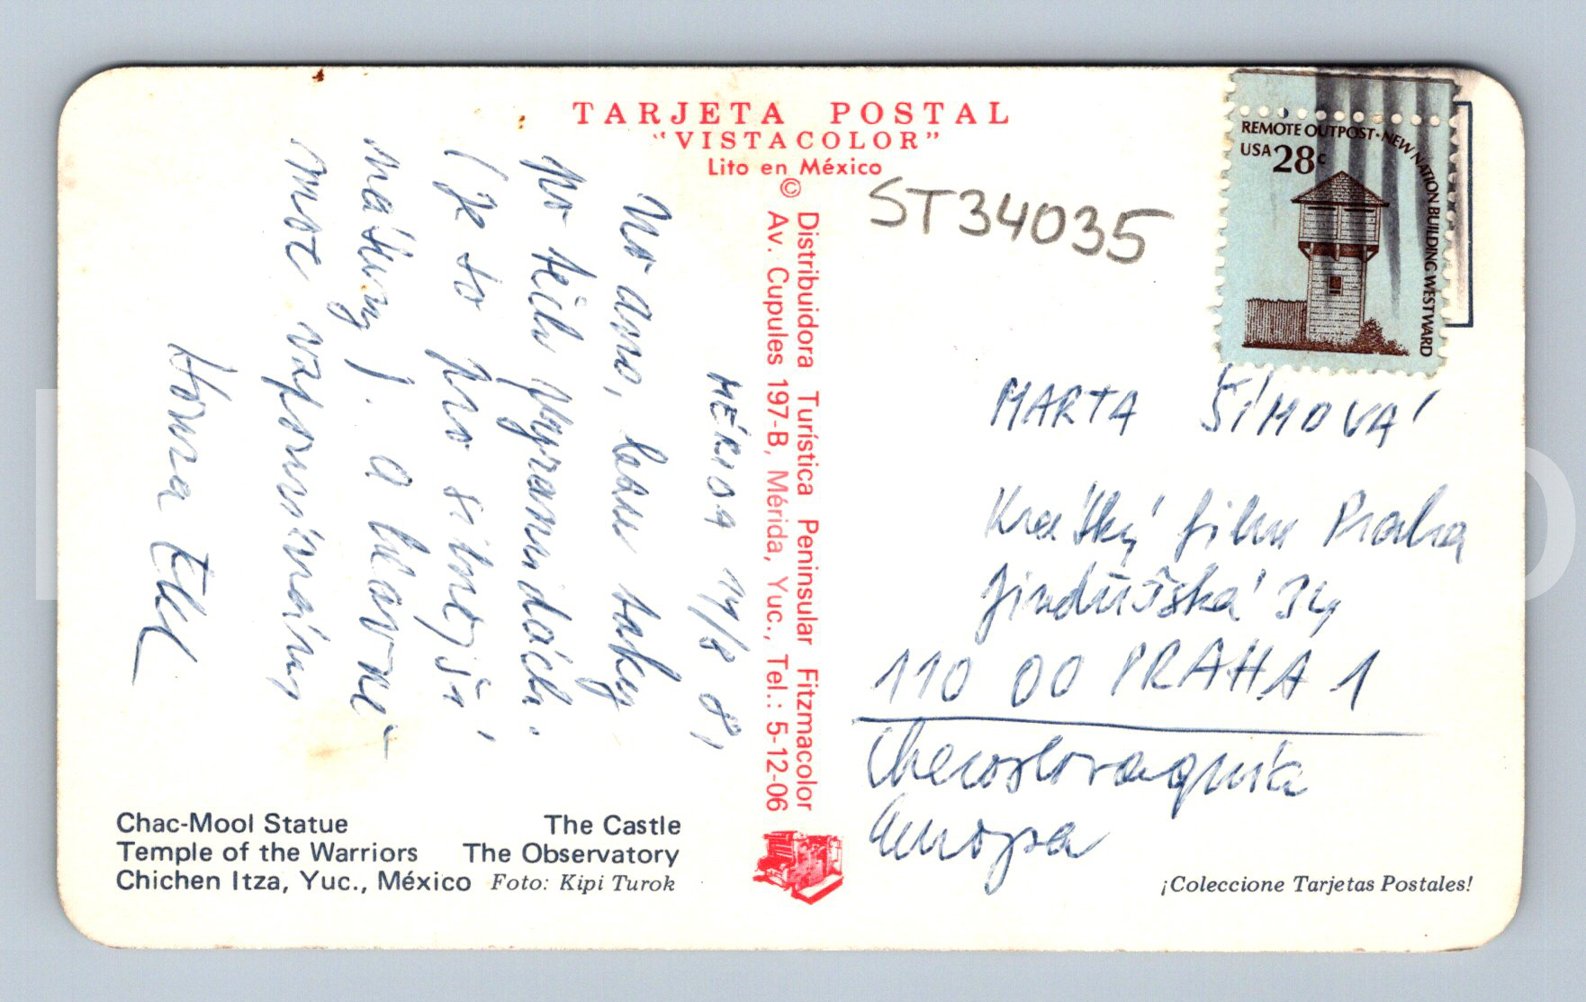 TARJETA POSTAL
"VISTACOLOR"
Lito en México
©
Distribuidora Turística Peninsular Fitzmacolor
Av. Cupules 197-B, Mérida, Yuc., Tel.: 5-12-06
MÉRIDA 14/8 81
No ano, lezu taky
po těch pyramidách.
(je to pro silnější
nátury). a hlavně
moc vzpomínám
Honza
ST34035
REMOTE OUTPOST·NEW NATION BUILDING WESTWARD
USA 28c
MARTA ŠÍMOVÁ
Krátký film Praha
Jindřišská 34
110 00 PRAHA 1
Checoslovaquia
Europa
Chac-Mool Statue The Castle
Temple of the Warriors The Observatory
Chichen Itza, Yuc., México Foto: Kipi Turok
¡Coleccione Tarjetas Postales!